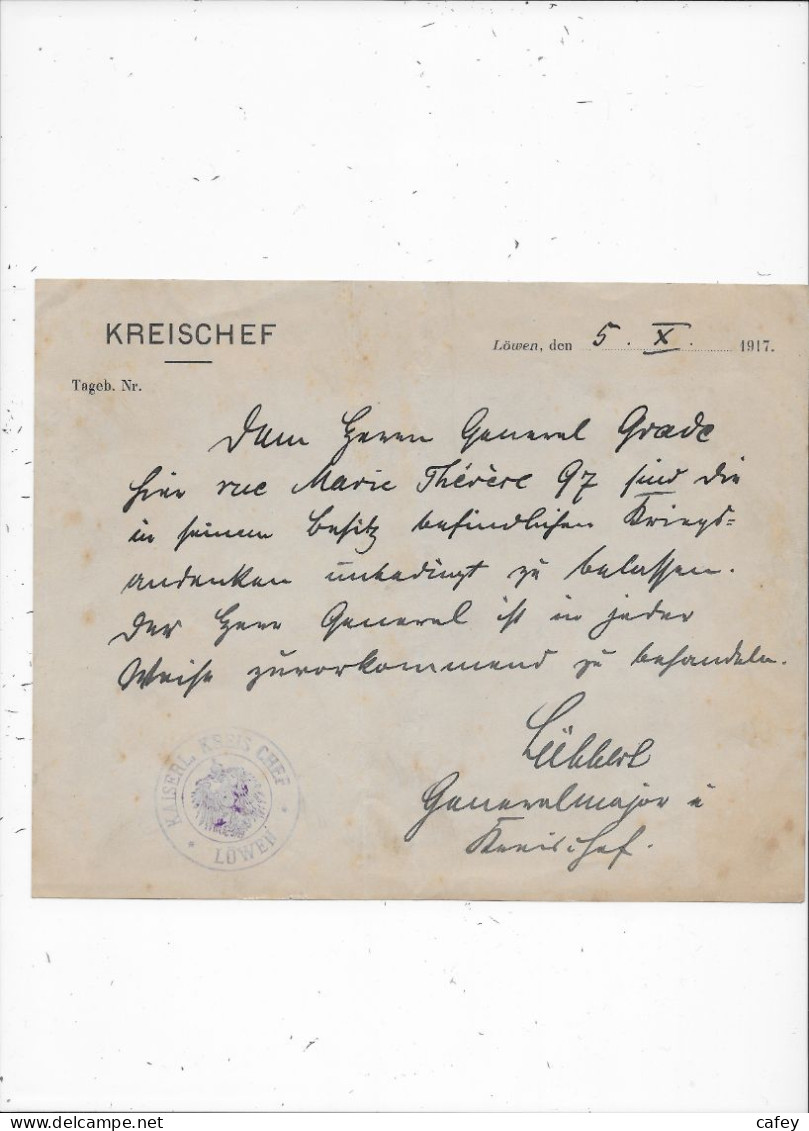 KREISCHEF
Löwen, den 5. X. 1917.
Tageb. Nr.
Dem Herrn General Grade
hier rue Marie Thérèse 97 sind die
in seinem Besitz befindlichen Kriegs=
andenken unbedingt zu belassen.
Der Herr General ist in jeder
Weise zuvorkommend zu behandeln.
Lübbert
Generalmajor u
Kreischef.
KAISERL. KREIS CHEF
* LÖWEN *
cafey